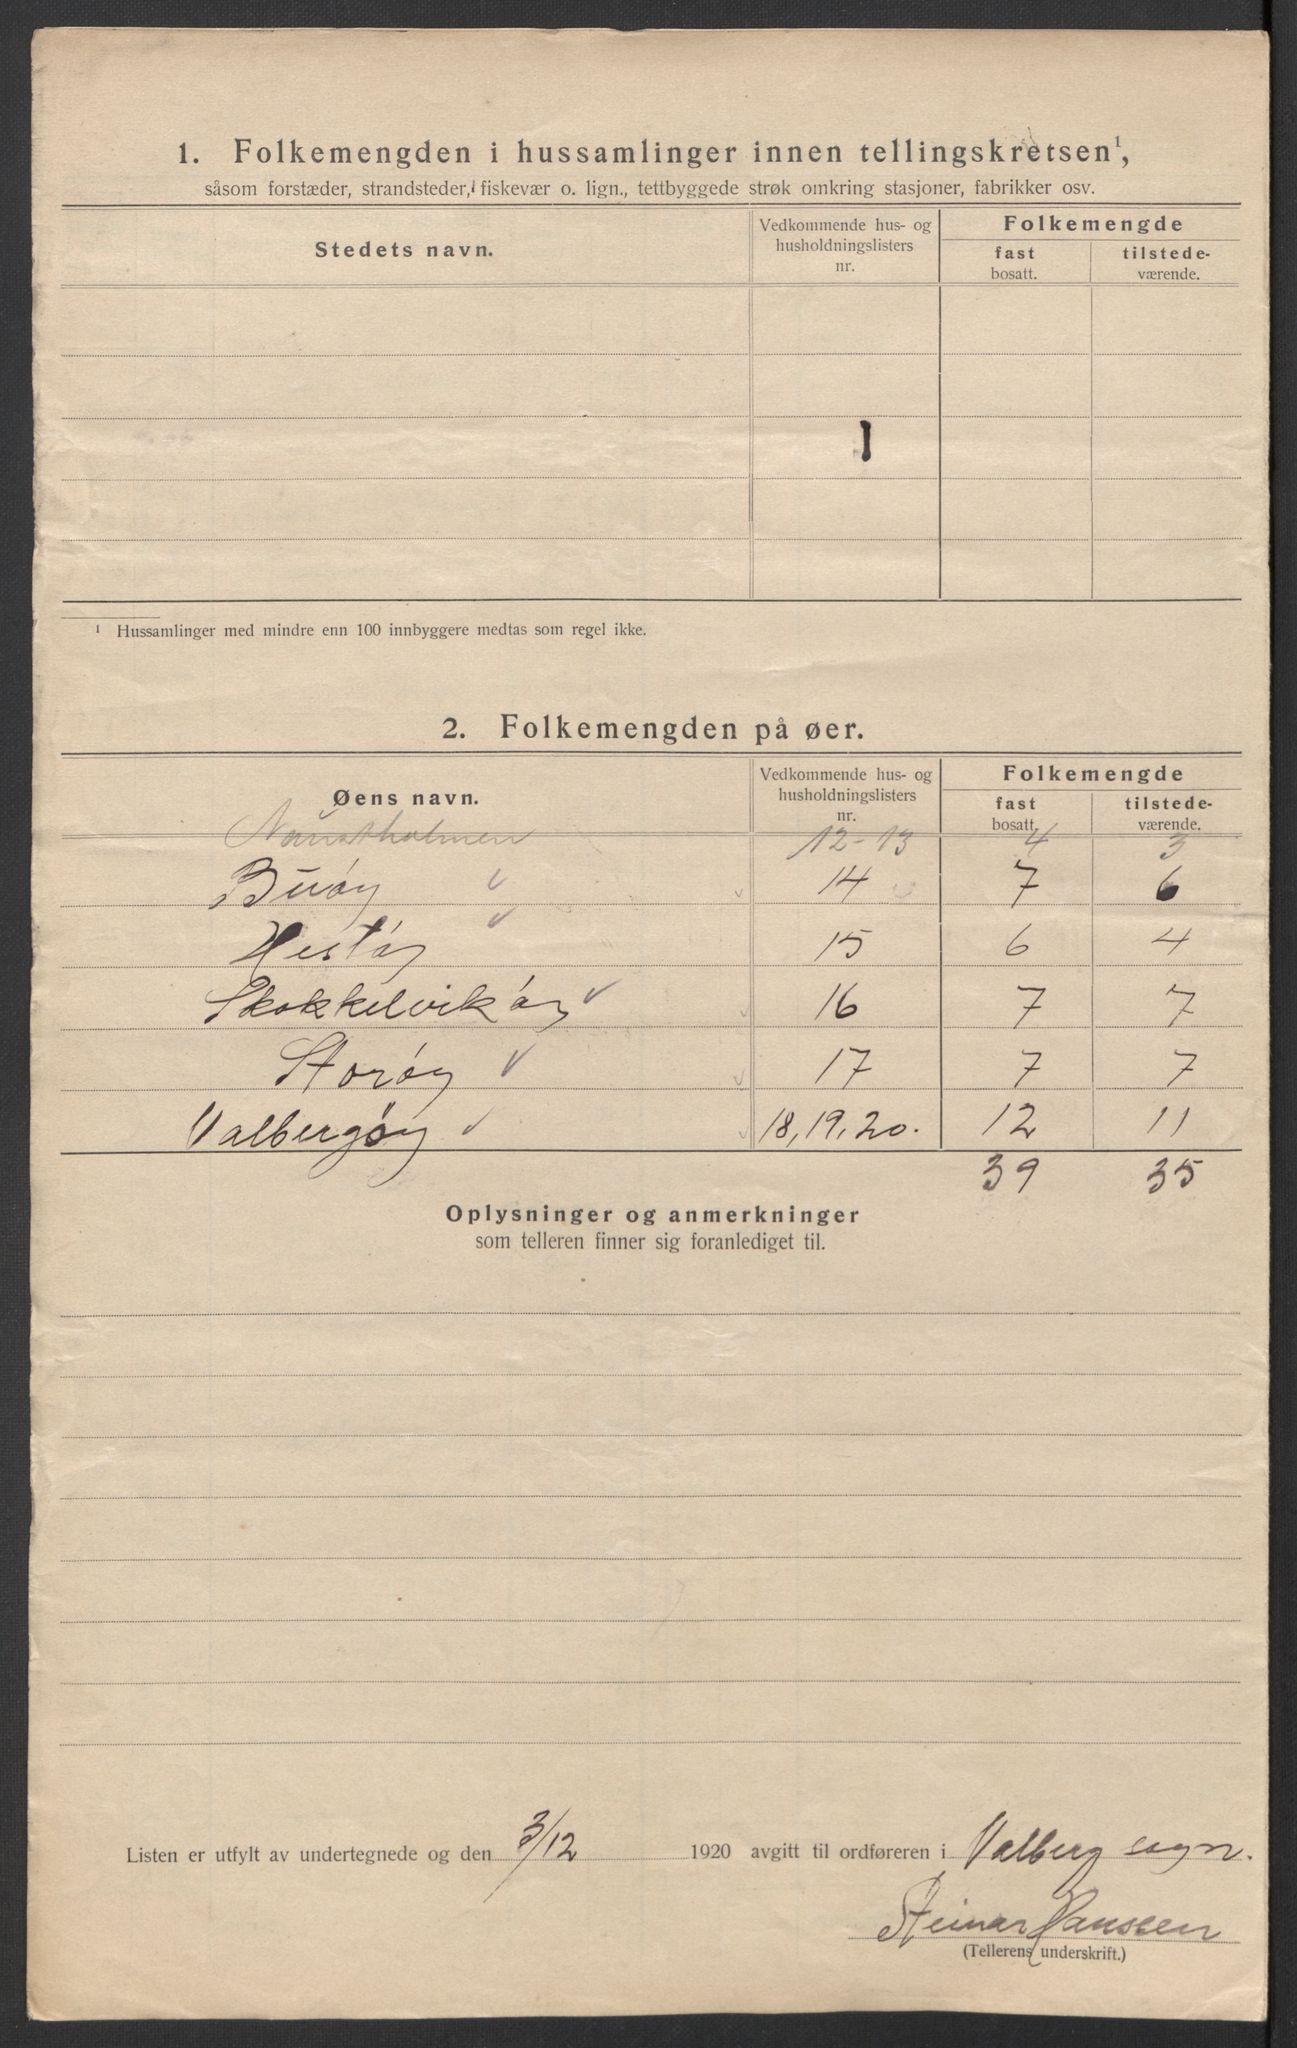 1. Folkemengden i hussamlinger innen tellingskretsen¹,
såsom forstæder, strandsteder, fiskevær o. lign., tettbyggede strøk omkring stasjoner, fabrikker osv.
Stedets navn.
Vedkommende hus- og husholdningslisters nr.
Folkemengde
fast bosatt.
tilstede-værende.
1
¹ Hussamlinger med mindre enn 100 innbyggere medtas som regel ikke.
2. Folkemengden på øer.
Øens navn.
Vedkommende hus- og husholdningslisters nr.
Folkemengde
fast bosatt.
tilstede-værende.
Naustholmen 12-13 4 3
Buøy 14 7 6
Hestøy 15 6 4
Skokkelvikøy 16 7 7
Storøy 17 7 7
Valbergøy 18, 19, 20. 12 11
39 35
Oplysninger og anmerkninger
som telleren finner sig foranlediget til.
Listen er utfylt av undertegnede og den 3/12 1920 avgitt til ordføreren i Valberg sogn.
Steinar Hanssen
(Tellerens underskrift.)